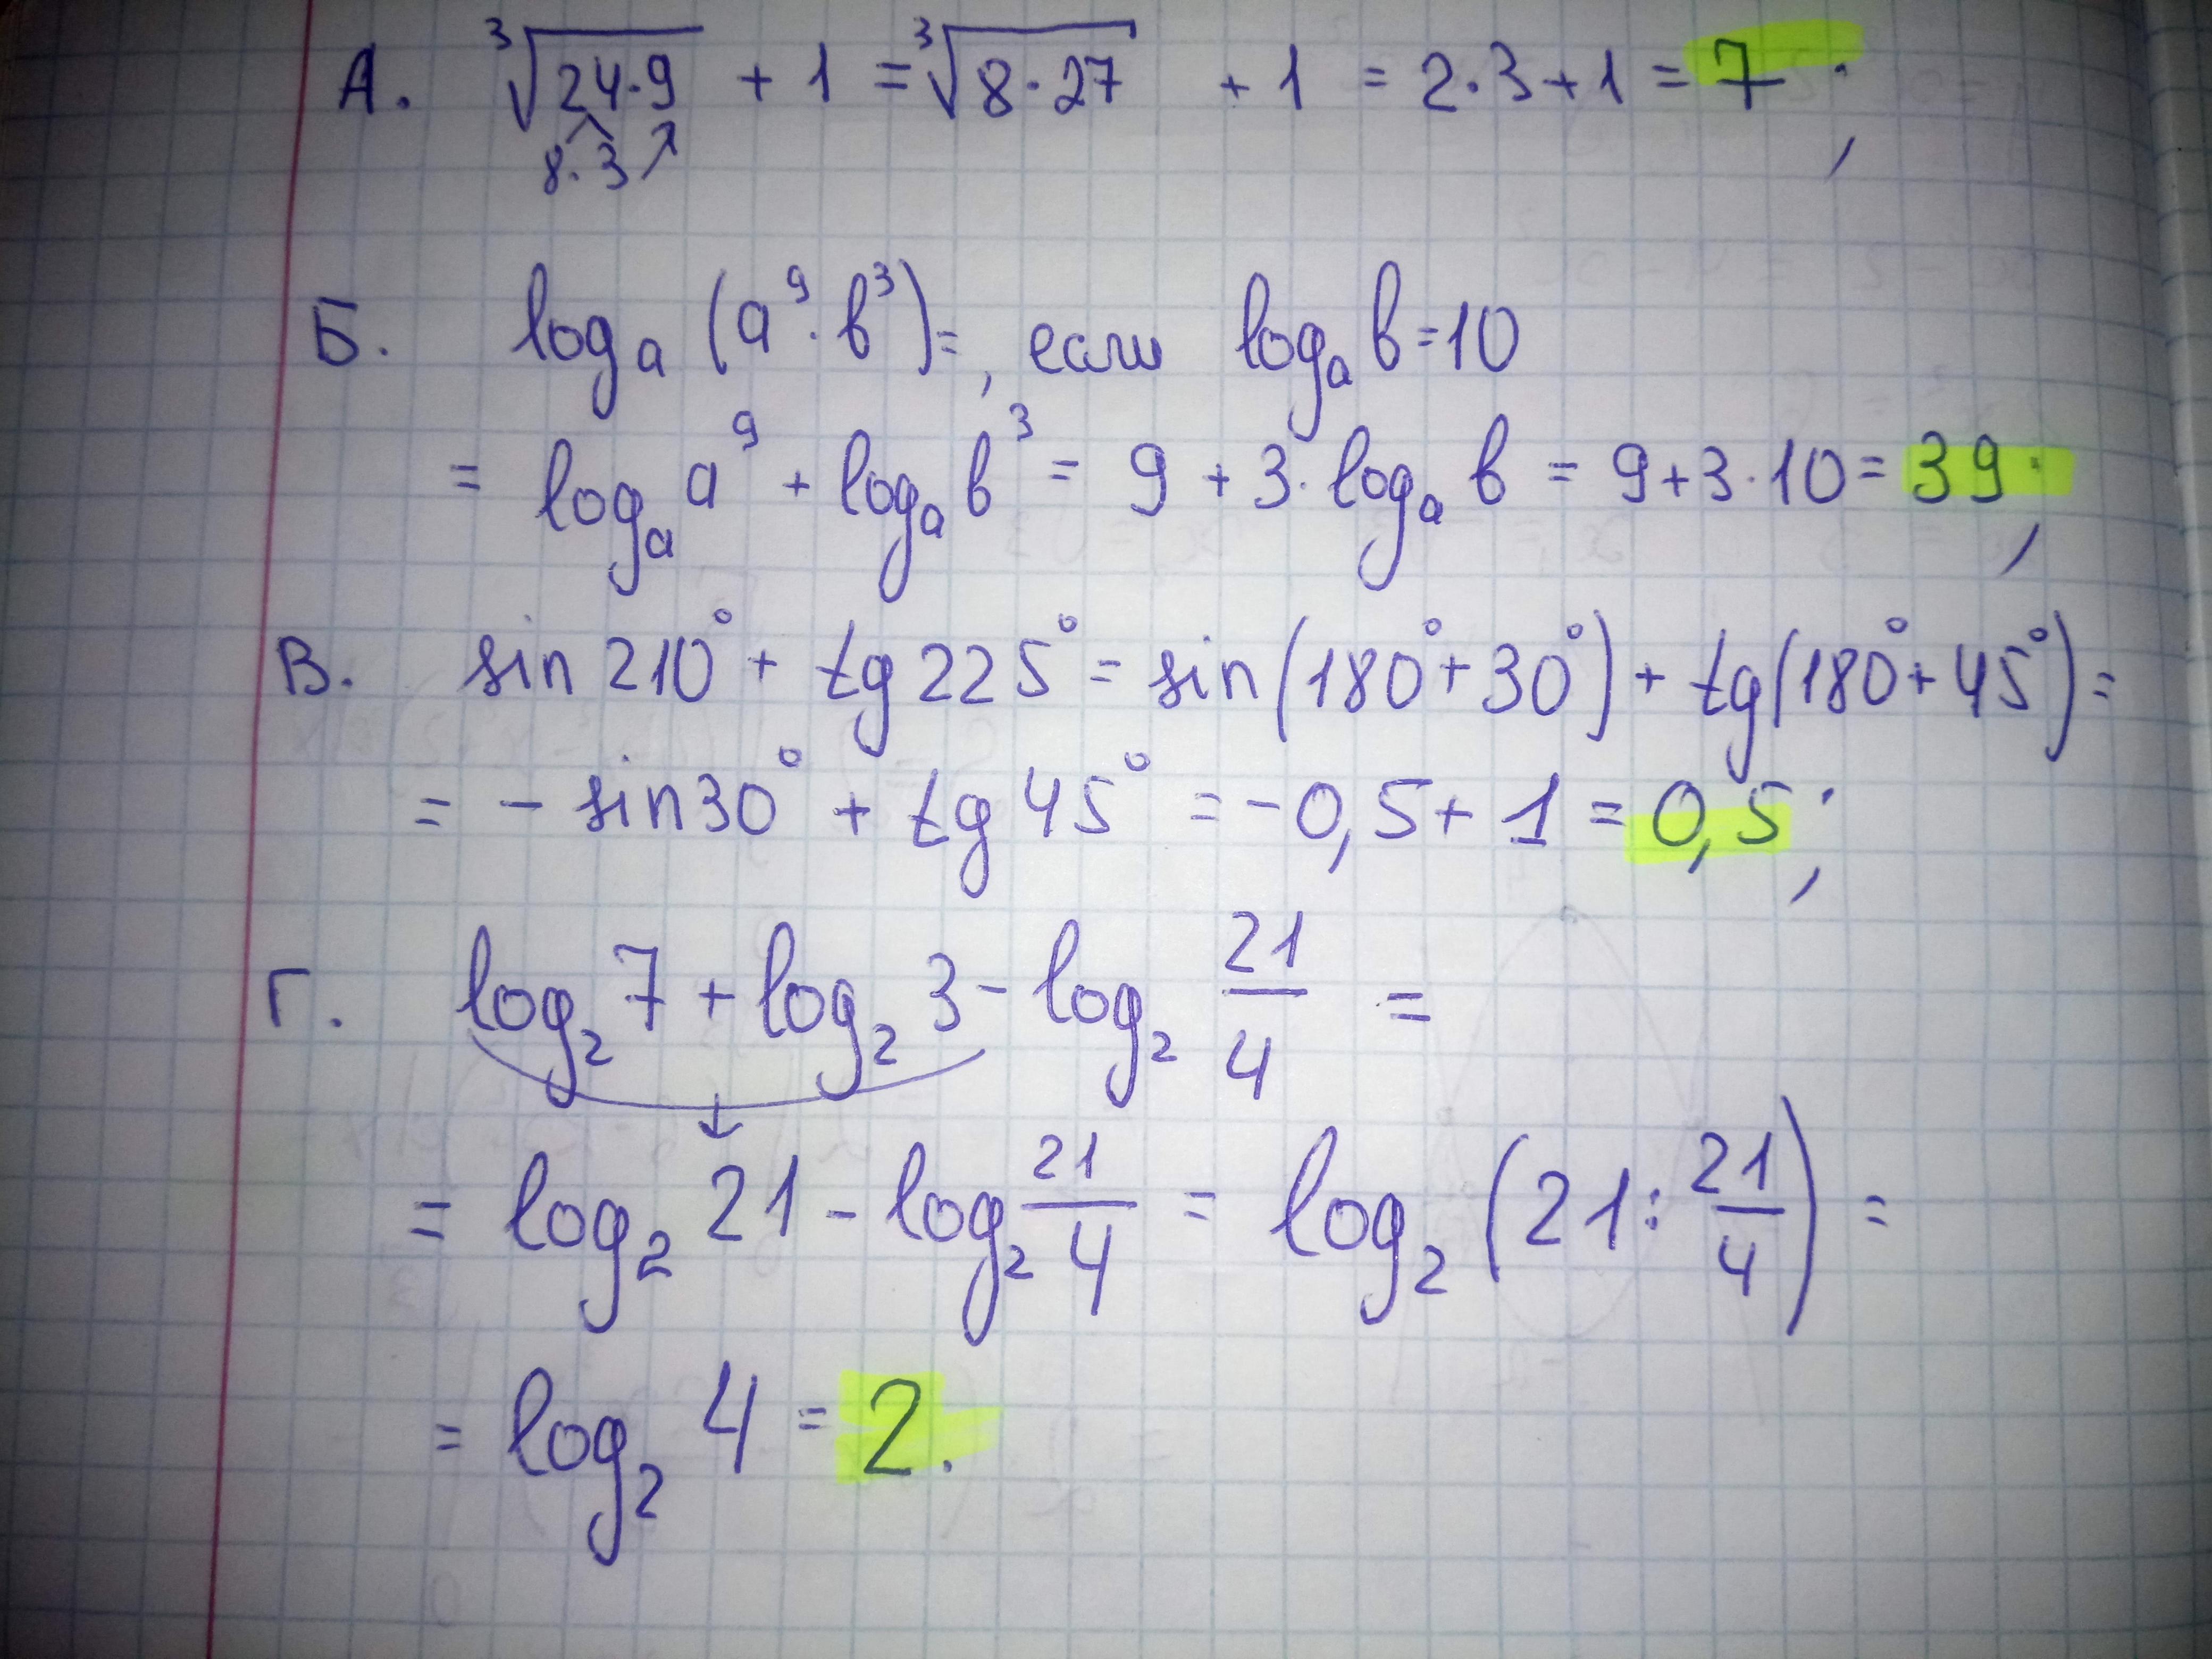 А. ∛(24·9) + 1 = ∛(8·27) + 1 = 2·3+1 = 7;
8·3
Б. logₐ (a⁹·b³)=, если logₐ b=10
= logₐ a⁹ + logₐ b³ = 9 + 3·logₐ b = 9+3·10= 39;
В. sin 210° + tg 225° = sin(180°+30°) + tg(180°+45°)=
= - sin30° + tg 45° = -0,5+1 = 0,5;
Г. log₂ 7 + log₂ 3 - log₂ 21/4 =
= log₂ 21 - log₂ 21/4 = log₂ (21: 21/4) =
= log₂ 4 = 2.